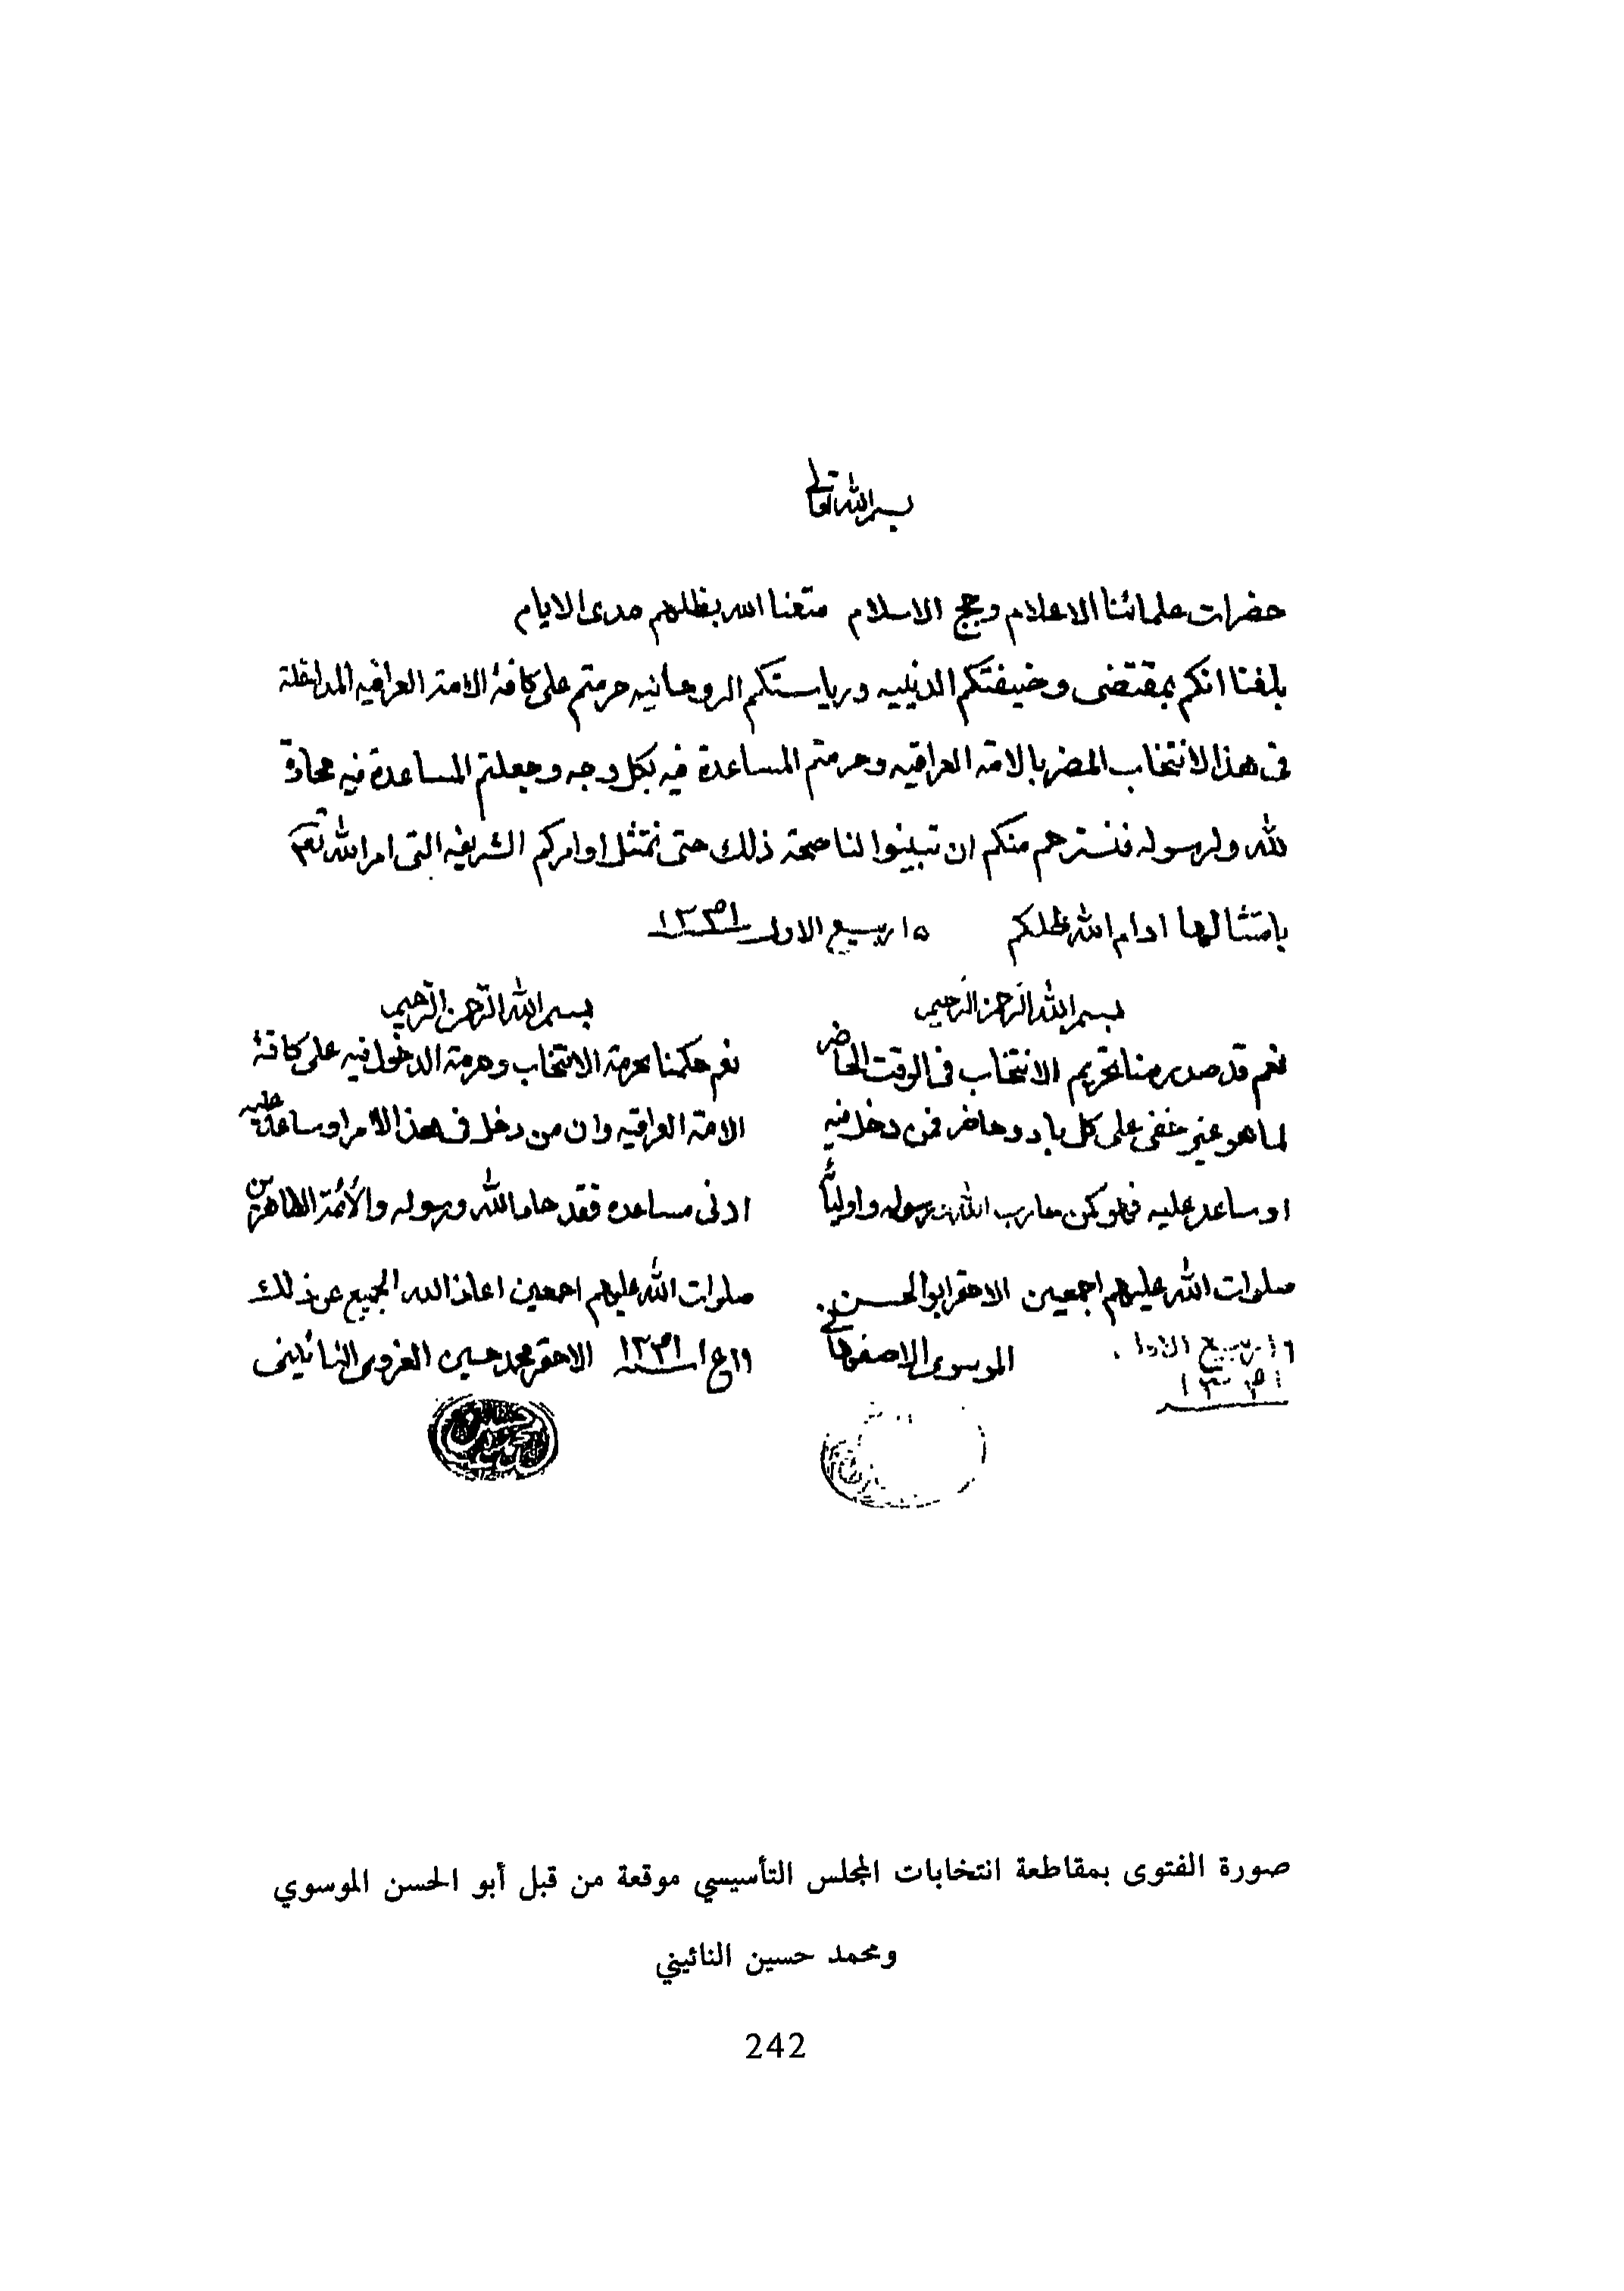 بسم الله تعالى
حضرات علمائنا الاعلام وحجج الاسلام متعنا الله بظلهم مدى الايام
بلغنا انكم بمقتضى وضيفتكم الدينيه ورياستكم الروحانيه حرمتم على كافة الامة العراقيه المداخلة
فى هذا الانتخاب المضر بالامة العراقيه وحرمتم المساعدة فيه بكل وجه وجعلتم المساعدة فيه محادة
لله ولرسوله فنسترحم منكم ان تبينوا لنا صحة ذلك حتى نمتثل اوامركم الشريفه التى امر الله تعم
بامتثالها ادام الله ظلكم ١٥ ربيع الاول ١٣٤١
بسم الله الرحمن الرحيم
نعم قد صدر منا تحريم الانتخاب فى الوقت الحاضر
لما هو غير خفى على كل باد وحاضر فمن دخل فيه
او ساعد عليه فهو كمن حارب الله ورسوله واولياء
صلوات الله عليهم اجمعين الاحقر ابو الحسن
الموسوى الاصفهانى
١٩ ربيع الاول
١٣٤١
بسم الله الرحمن الرحيم
نعم حكمنا بحرمة الانتخاب وحرمة الدخول فيه على كافة
الامة العراقيه وان من دخل فى هذا الامر او ساعد عليه
ادنى مساعده فقد حاد الله ورسوله والائمة الطاهرين
صلوات الله عليهم اجمعين اعاذ الله الجميع عن ذلك
١٩ ع ١ سنه ١٣٤١ الاحقر محمد حسين الغروى النائينى
صورة الفتوى بمقاطعة انتخابات المجلس التأسيسي موقعة من قبل أبو الحسن الموسوي
ومحمد حسين النائيني
242